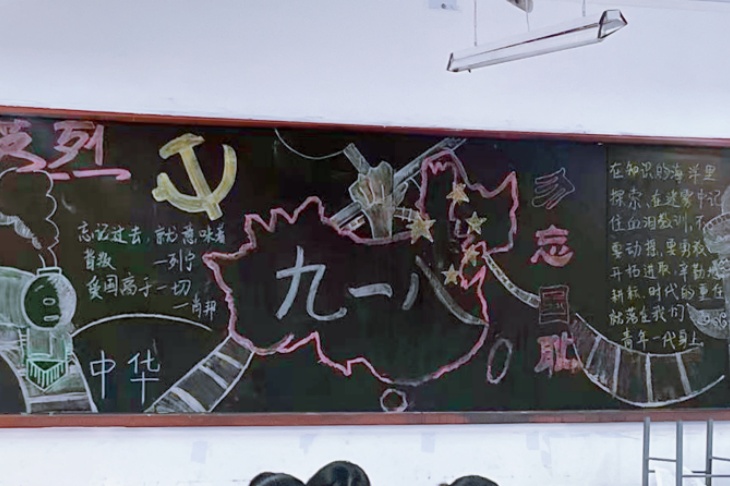 列
忘记过去,就意味着
背叛 —列宁
爱国高于一切
—肖邦
中华
九一八
勿
忘
国
耻
在知识的海洋里
探索,在迷雾中记
住血泪教训,不
要动摇,要勇敢
开拓进取,辛勤地
耕耘,时代的重任
就落在我们
青年一代身上